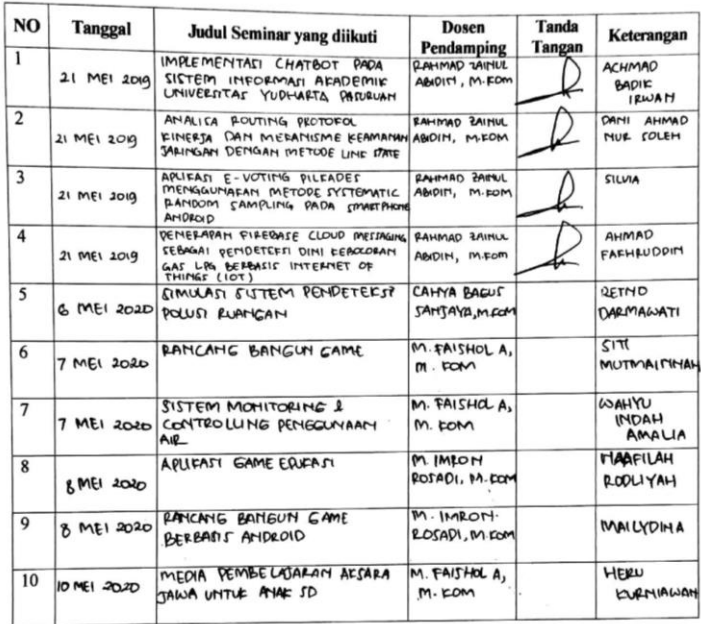 NO Tanggal Judul Seminar yang diikuti Dosen Pendamping Tanda Tangan Keterangan
1
21 MEI 2019
IMPLEMENTASI CHATBOT PADA
SISTEM INFORMASI AKADEMIK
UNIVERSITAS YUDHARTA PASURUAN
RAHMAD ZAINUL
ABIDIN, M.KOM
ACHMAD
BADIK
IRWAN
2
21 MEI 2019
ANALISA ROUTING PROTOKOL
KINERJA DAN MEKANISME KEAMANAN
JARINGAN DENGAN METODE LINK STATE
RAHMAD ZAINUL
ABIDIN, M.KOM
DANI AHMAD
NUR SOLEH
3
21 MEI 2019
APLIKASI E-VOTING PILKADES
MENGGUNAKAN METODE SYSTEMATIC
RANDOM SAMPLING PADA SMARTPHONE
ANDROID
RAHMAD ZAINUL
ABIDIN, M.KOM
SILVIA
4
21 MEI 2019
PENERAPAN FIREBASE CLOUD MESSAGING
SEBAGAI PENDETEKSI DINI KEBOCORAN
GAS LPG BERBASIS INTERNET OF
THINGS (IOT)
RAHMAD ZAINUL
ABIDIN, M.KOM
AHMAD
FAKHRUDDIN
5
6 MEI 2020
SIMULASI SISTEM PENDETEKSI
POLUSI RUANGAN
CAHYA BAGUS
SANJAYA, M.KOM
RETNO
DARMAWATI
6
7 MEI 2020
RANCANG BANGUN GAME
M. FAISHOL A,
M. KOM
SITI
MUTMAINNAH
7
7 MEI 2020
SISTEM MONITORING &
CONTROLLING PENGGUNAAN
AIR
M. FAISHOL A,
M. KOM
WAHYU
INDAH
AMALIA
8
8 MEI 2020
APLIKASI GAME EDUKASI
M. IMRON
ROSADI, M.KOM
NAAFILAH
RODLIYAH
9
8 MEI 2020
RANCANG BANGUN GAME
BERBASIS ANDROID
M. IMRON
ROSADI, M.KOM
MAILYDINA
10
10 MEI 2020
MEDIA PEMBELAJARAN AKSARA
JAWA UNTUK ANAK SD
M. FAISHOL A,
M. KOM
HERU
KURNIAWAN